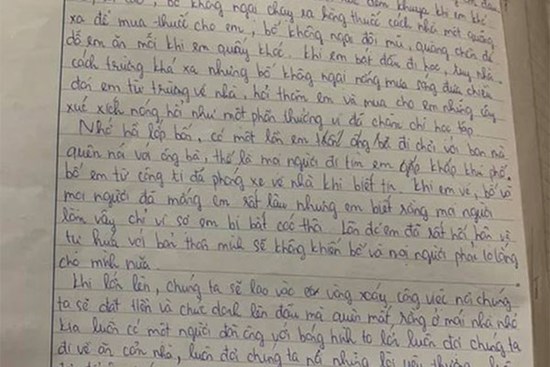 đêm khuya khi em khó
, bố không ngại chạy ra hàng thuốc cách nhà một quãng
xa để mua thuốc cho em, bố không ngại đội mũ, quàng chăn để
dỗ em ăn mỗi khi em quấy khóc. Khi em bắt đầu đi học, tuy nhà
cách trường khá xa nhưng bố không ngại nắng mưa sáng đưa chiều
đón em từ trường về nhà, hỏi thăm em và mua cho em những cây
xúc xích nóng hổi như một phần thưởng vì đã chăm chỉ học tập.
Nhớ hồi lớp bốn, có một lần em đi chơi với bạn mà
quên nói với ông bà, thế là mọi người đi tìm em khắp khu phố.
bố em từ công ti đã phóng xe về nhà khi biết tin. Khi em về, bố và
mọi người đã mắng em rất lâu nhưng em biết rằng mọi người
làm vậy chỉ vì sợ em bị bắt cóc thôi. Lần đó em đã rất hối hận và
tự hứa với bản thân mình sẽ không khiến bố và mọi người phải lo lắng
cho mình nữa.
Khi lớn lên, chúng ta sẽ lao vào vòng xoáy công việc nói chung,
ta sẽ đặt tiền và chức danh lên đầu mà quên mất rằng ở mái nhà nhỏ
kia luôn có một người đàn ông với bóng hình to lớn luôn đợi chúng ta
đi về ăn cơm nhà, luôn đợi chúng ta nói những lời yêu thương,